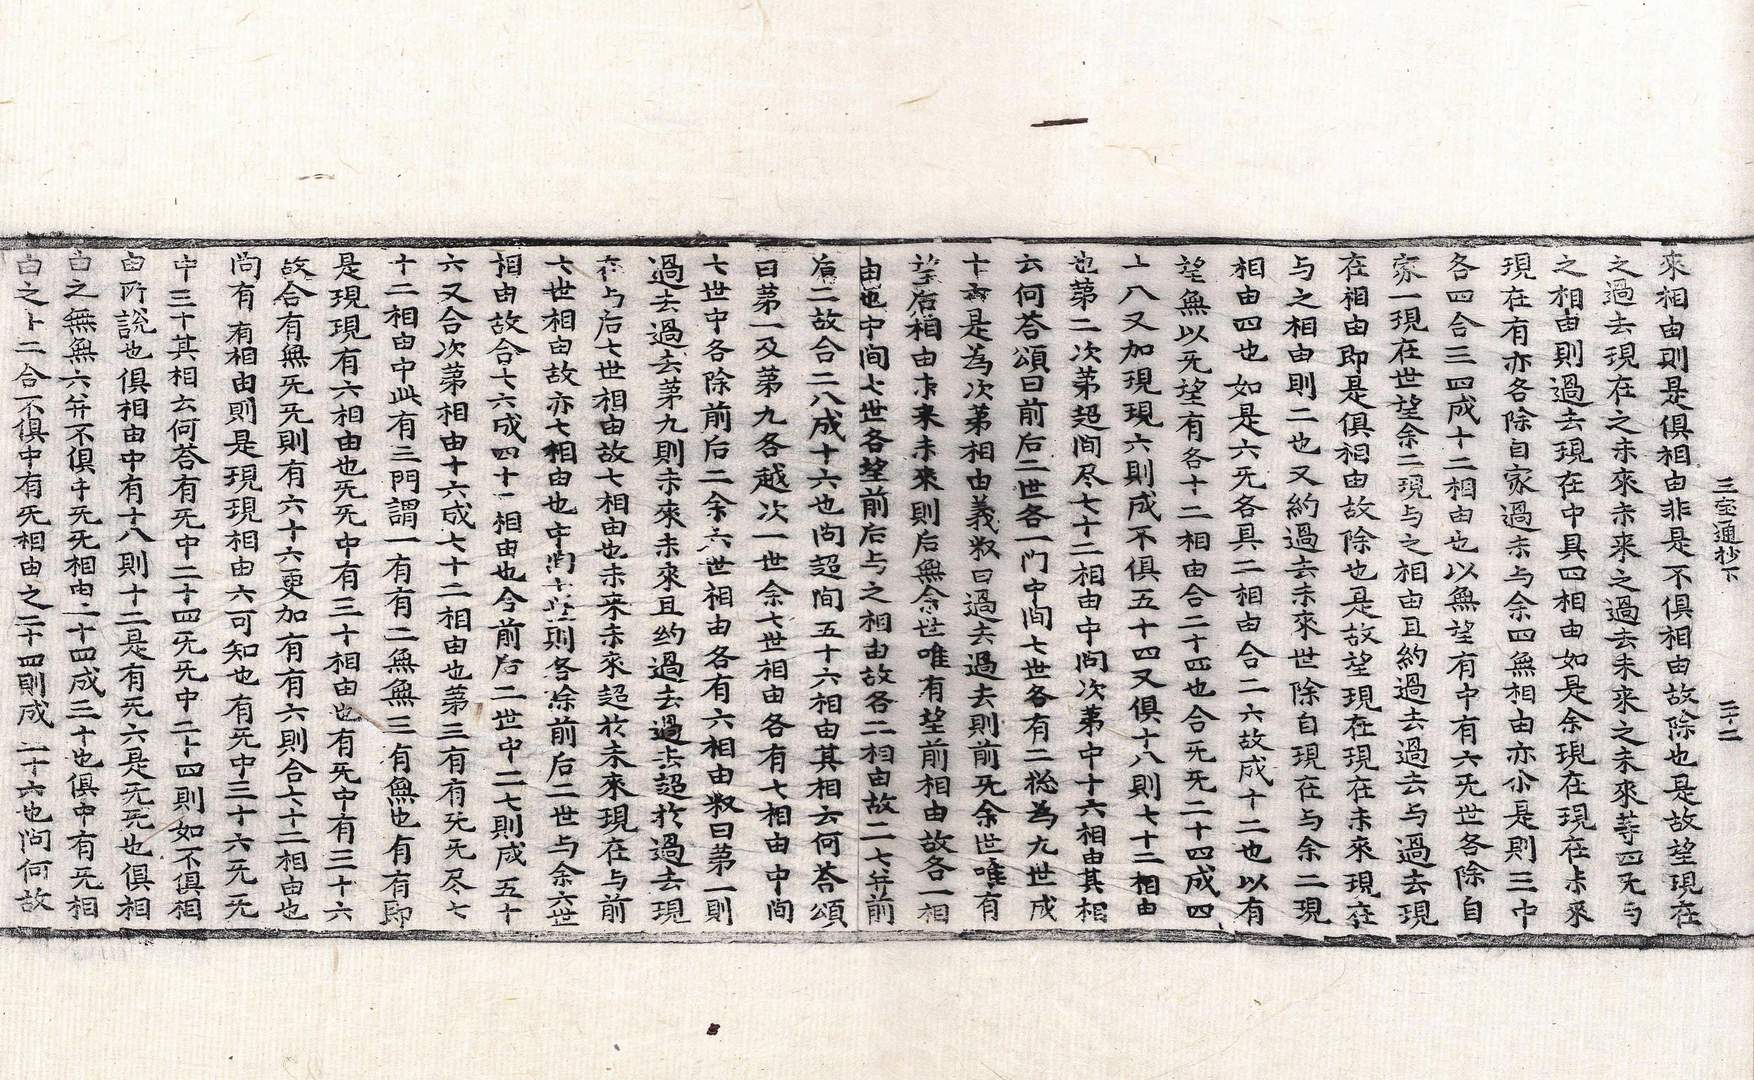 三宝通抄下 三十二
來相由則是俱相由非是不俱相由故除也是故望現在
之過去現在之未來未来之過去未来之未來等四旡与
之相由則過去現在中具四相由如是余現在現在未來
現在有亦各除自家過未与余四無相由亦尒是則三中
各四合三四成十二相由也以無望有中有六旡世各除自
家一現在世望余二現与之相由且約過去過去与過去現
在相由即是俱相由故除也是故望現在現在未來現在
与之相由則二也又約過去未來世除自現在与余二現
相由四也如是六旡各具二相由合二六故成十二也以有
望無以旡望有各十二相由合二十四也合旡旡二十四成四
十八又加現現六則成不俱五十四又俱十八則七十二相由
也第二次第超間尽七十二相由中問次第中十六相由其相
云何荅頌曰前后二世各一門中间七世各有二捴為九世成
十六是為次第相由義釈曰過去過去則前旡余世唯有
望后相由未来未來則后無余世唯有望前相由故各一相
由也中间七世各望前后与之相由故各二相由故二七并前
后二故合二八成十六也问超间五十六相由其相云何荅頌
曰第一及第九各越次一世余七世相由各有七相由中间
七世中各除前后二余六世相由各有六相由釈曰第一則
過去過去第九則未來未來且约過去過去超於過去現
在与后七世相由故七相由也未来未來超於未來現在与前
七世相由故亦七相由也中间七世則各除前后二世与余六世
相由故合七六成四十二相由也今前后二世中二七則成五十
六又合次第相由十六成七十二相由也第三有有旡旡尽七
十二相由中此有三門謂一有有二無無三有無也有有即
是現現有六相由也旡旡中有三十相由也有旡中有三十六
故合有無旡旡則有六十六更加有有六則合七十二相由也
问有有相由則是現現相由六可知也有旡中三十六旡旡
中三十其相云何荅有旡中二十四旡旡中二十四則如不俱相
由所說也俱相由中有十八則十二是有旡六是旡旡也俱相
由之無無六并不俱中旡旡相由二十四成三十也俱中有旡相
由之十二合不俱中有旡相由之二十四則成三十六也问何故